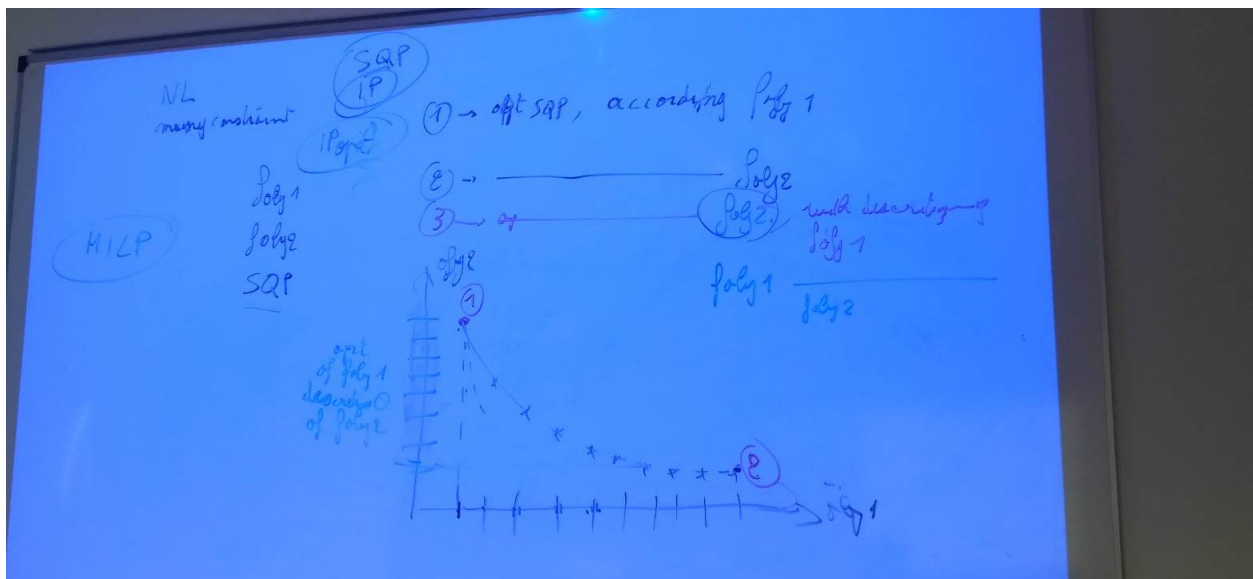 SQP
IP
NL
many constraint
IPopt
① → opt SQP, according fobj 1
② → fobj 2
③ → fobj 2, with discretizing
fobj 1
fobj 1
fobj 2
SQP
MILP
fobj 1
fobj 2
obj 2
①
opt
of fobj 1
of fobj 2
②
obj 1